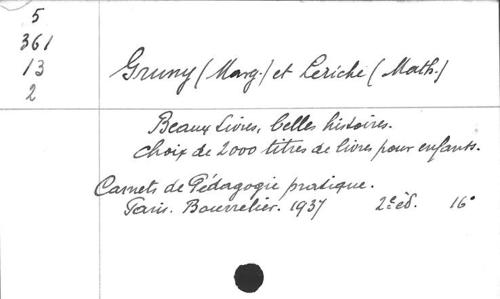 5
361
13
2
Gruny (Marg.) et Leriche (Math.)
Beaux livres, belles histoires.
Choix de 2000 titres de livres pour enfants.
Carnets de Pédagogie pratique.
Paris. Bourrelier. 1937 2e éd. 16°